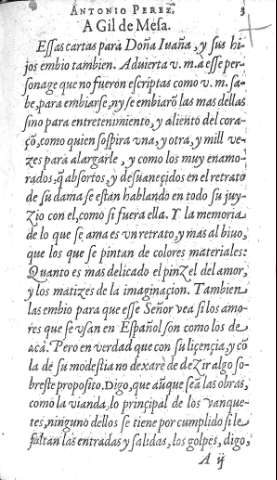 ANTONIO PEREZ. 3
A Gil de Mesa.
Essas cartas para Doña Iuaña, y sus hi-
jos embio tambien. Aduierta v. m. a esse per-
sonage que no fueron escriptas como v. m. sa-
be, para embiarse, ny se embiarõ las mas dellas
sino para entretenimiento, y aliento del cora-
çõ, como quien sospira vna, y otra, y mill ve-
zes para alargarle, y como los muy enamo-
rados, q̃ absortos, y desuaneçidos en el retrato
de su dama se estan hablando en todo su juy-
zio con el, como si fuera ella. Y la memoria
de lo que se ama es vn retrato, y mas al biuo,
que los que se pintan de colores materiales:
Quanto es mas delicado el pinzel del amor,
y los matizes de la imaginaçion. Tambien
las embio para que esse Señor vea si los amo-
res que se vsan en Español son como los de
acà. Pero en verdad que con su liçençia, y cõ
la de su modestia no dexarè de dezir algo so-
breste proposito. Digo, que aũque seã las obras,
como la vianda, lo prinçipal de los vanque-
tes, ninguno dellos se tiene por cumplido si le
faltan las entradas y salidas, los golpes, digo,
A ij